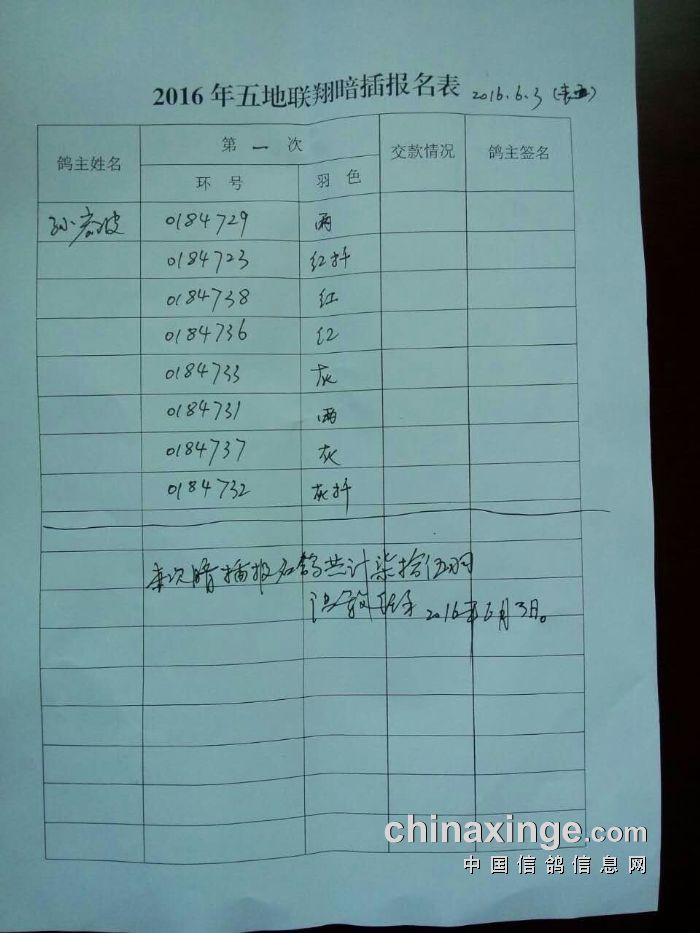 2016年五地联翔暗插报名表 2016.6.3 (表五)
鸽主姓名 第一次 交款情况 鸽主签名
环号 羽色
0184729 雨
0184723 红扦
0184738 红
0184736 红
0184733 灰
0184731 雨
0184737 灰
0184732 灰扦
本次暗插报名鸽共计柒拾伍羽
2016年6月3日。
chinaxinge.com
中国信鸽信息网